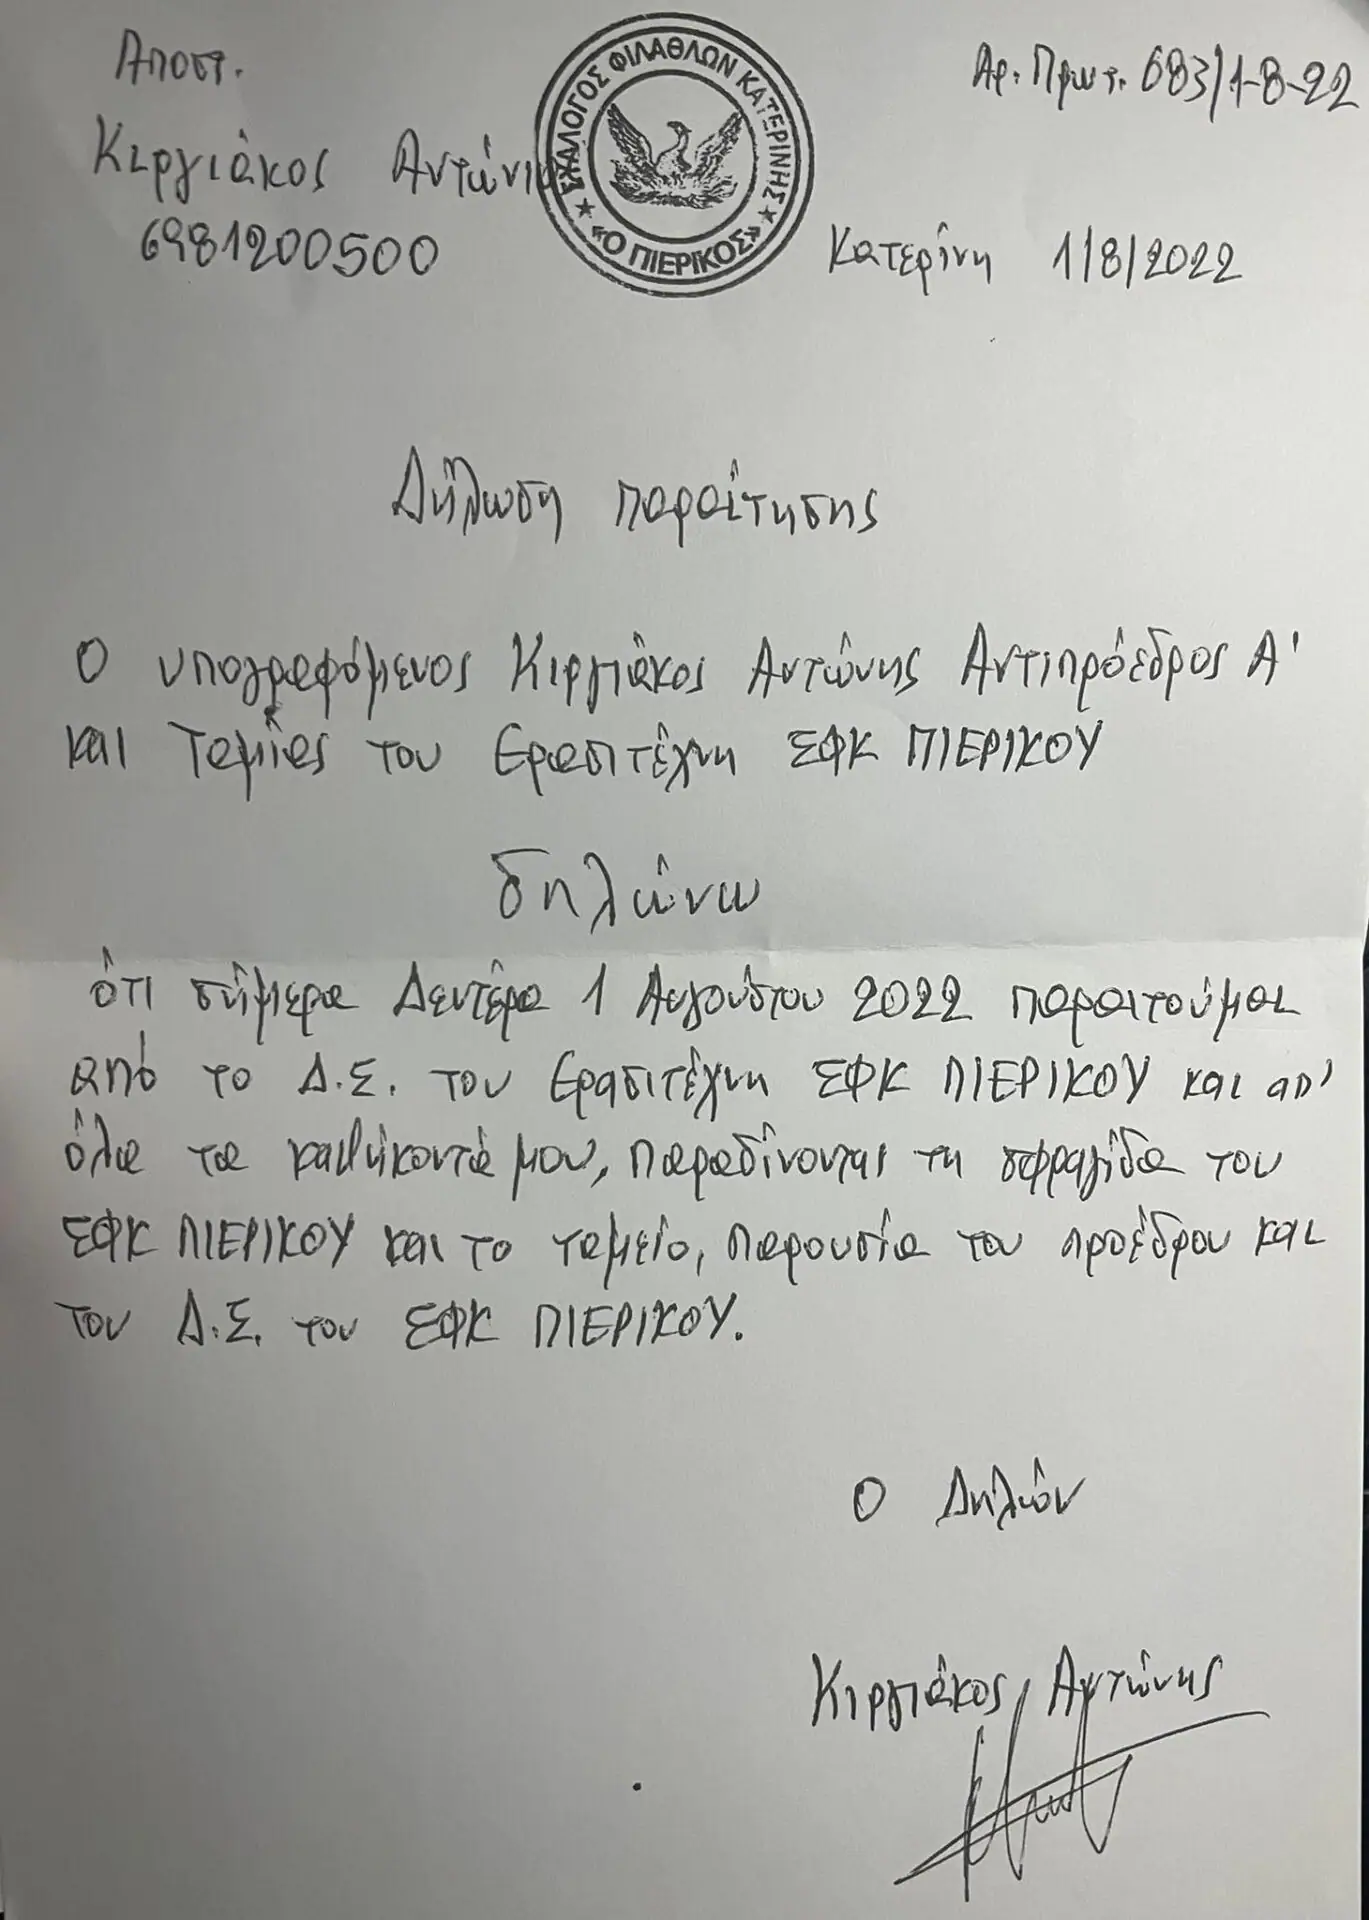 Αποστ.
Αρ. Πρωτ. 683/1-8-22
Κιργιάκος Αντώνιος
6981200500
ΣΥΛΛΟΓΟΣ ΦΙΛΑΘΛΩΝ ΚΑΤΕΡΙΝΗΣ
«Ο ΠΙΕΡΙΚΟΣ»
Κατερίνη 1/8/2022
Δήλωση παραίτησης
Ο υπογραφόμενος Κιργιάκος Αντώνης Αντιπρόεδρος Α'
και Ταμίας του Ερασιτέχνη ΣΦΚ ΠΙΕΡΙΚΟΥ
δηλώνω
ότι σήμερα Δευτέρα 1 Αυγούστου 2022 παραιτούμαι
από το Δ.Σ. του Ερασιτέχνη ΣΦΚ ΠΙΕΡΙΚΟΥ και απ'
όλα τα καθήκοντά μου, παραδίνοντας τη σφραγίδα του
ΣΦΚ ΠΙΕΡΙΚΟΥ και το ταμείο, παρουσία του προέδρου και
του Δ.Σ. του ΣΦΚ ΠΙΕΡΙΚΟΥ.
Ο Δηλών
Κιργιάκος Αντώνης